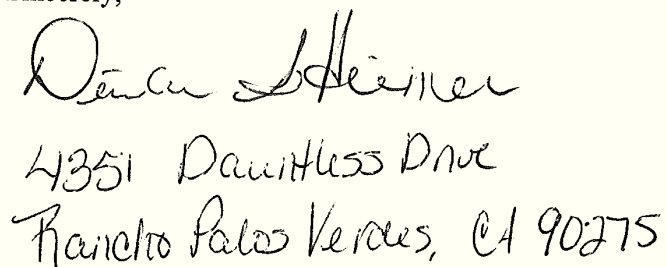 Sincerely,
4351 Dauntless Drive
Rancho Palos Verdes, CA 90275